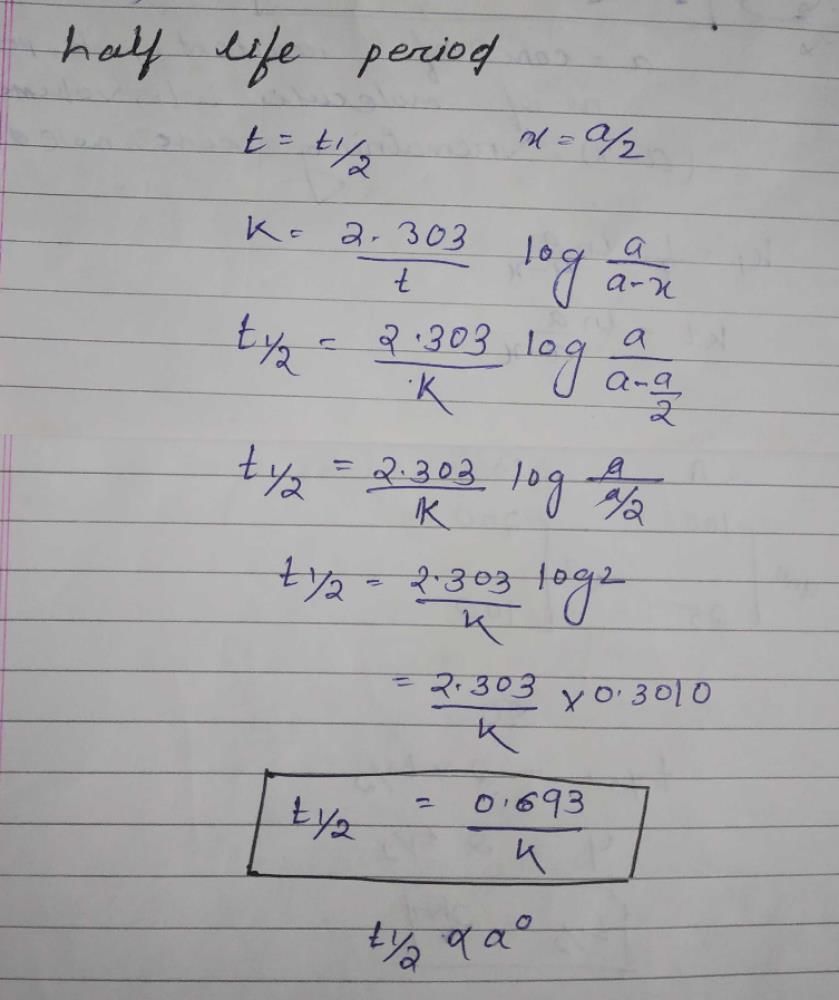 half life period
t = t1/2 x = a/2
K = 2.303/t log a/a-x
t1/2 = 2.303/K log a/a-a/2
t1/2 = 2.303/K log a/a/2
t1/2 = 2.303/K log2
= 2.303/K x 0.3010
t1/2 = 0.693/K
t1/2 α a⁰